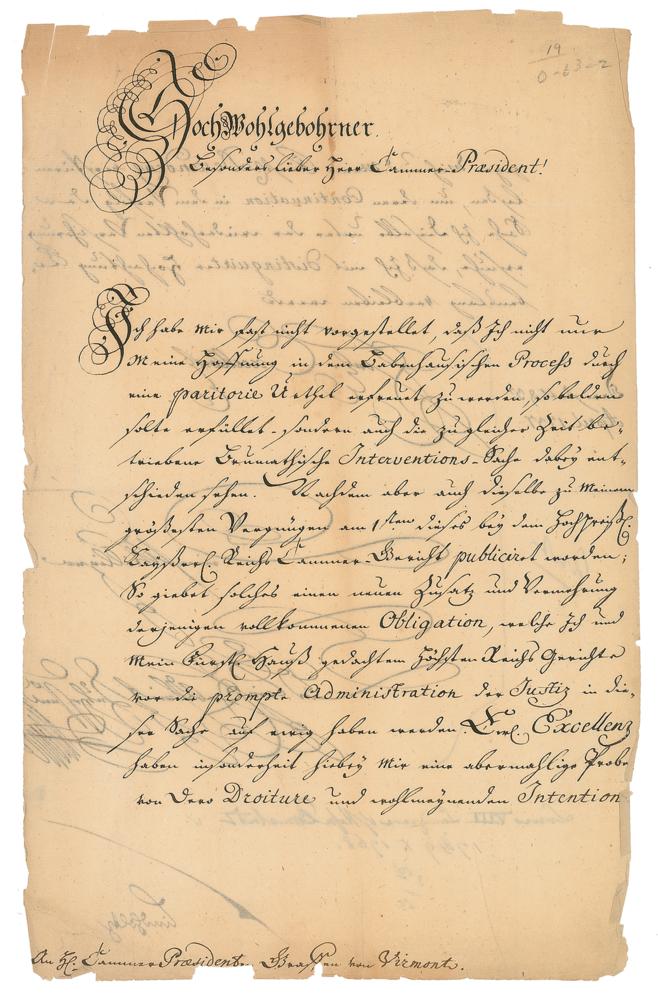 19
0-63-2
HochWohlgebohrner
Besonders lieber Herr Cammer-Præsident!
Ich habe mir fast nicht vorgestellet, daß Ich nicht nur
Meine Hoffnung in dem Babenhausischen Process durch
eine paritorie Urthel erfreuet zu werden, so balden
solte erfüllet, sondern auch die zu gleicher Zeit be-
triebene Brumathische Interventions-Sache dabey ent-
schieden sehen. Nachdem aber auch dieselbe zu Meinem
größesten Vergnügen am 1sten dieses bey dem Hochpreißl.
Kayßerl. Reichs Cammer-Gericht publiciret worden;
So giebet solches einen neuen Zusatz und Vermehrung
derjenigen vollkommenen Obligation, welche Ich und
Mein Fürstl. Hauß gedachtem Höchsten Reichs Gerichte
vor die prompte Administration der Justiz in die-
ser Sache auf ewig haben werden. Ewl. Excellenz
haben insonderheit hiebey Mir eine abermahlige Probe
von Dero Droiture und wohlmeynenden Intention
An H. Cammer Præsidenten Graffen von Virmont.